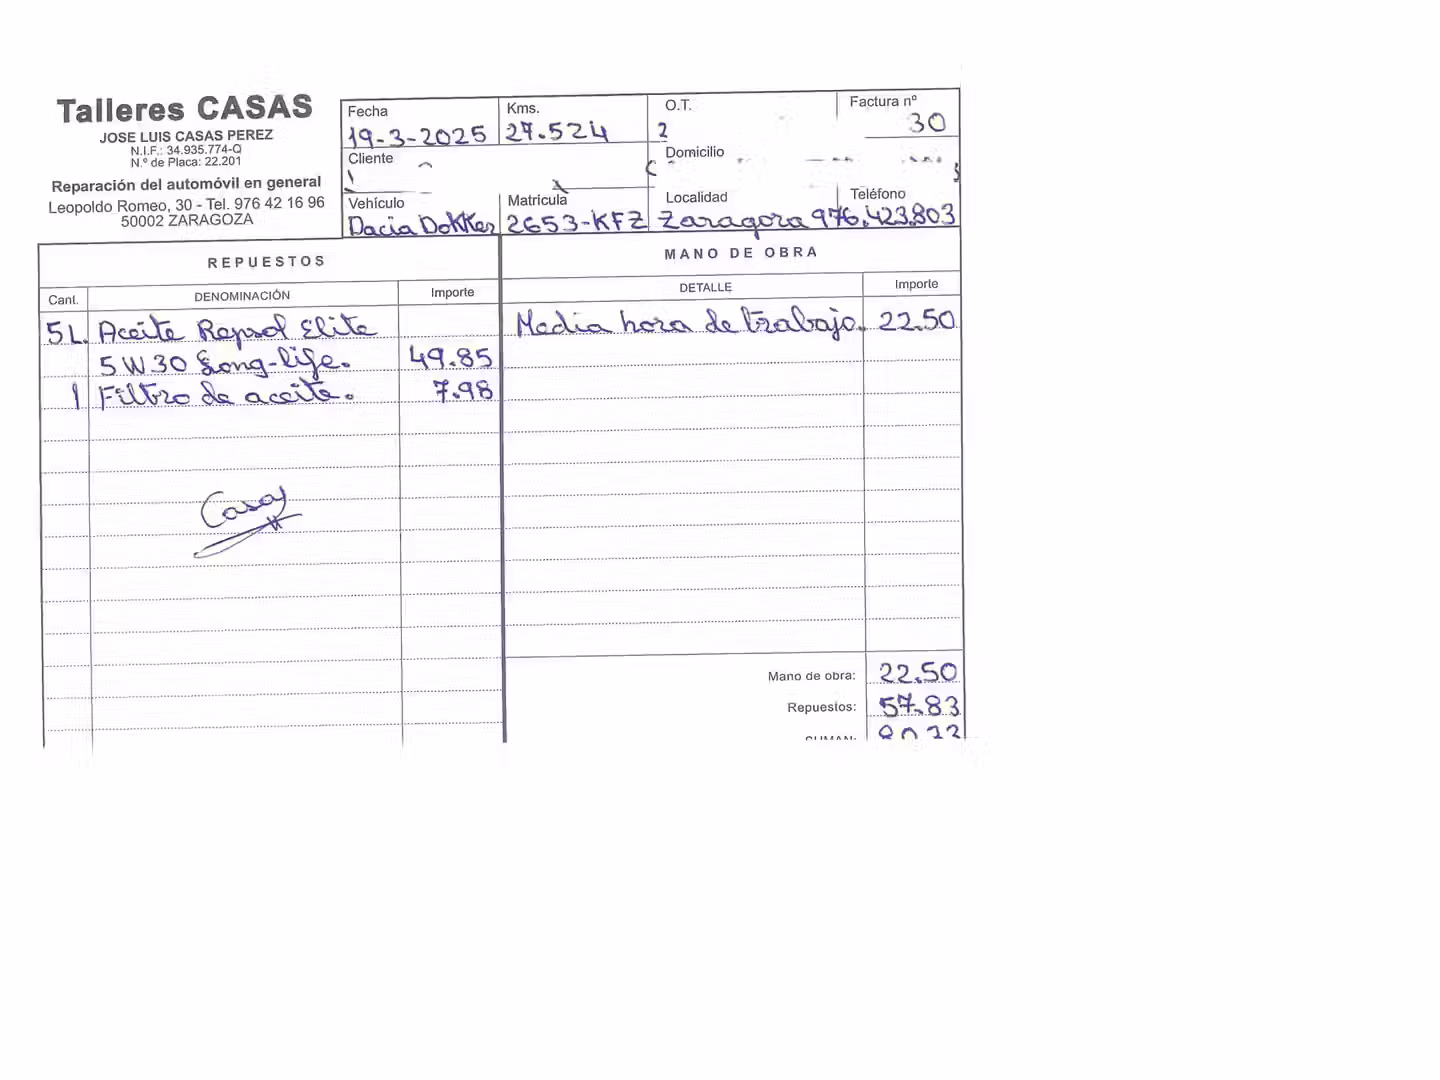 Talleres CASAS
JOSE LUIS CASAS PEREZ
N.I.F.: 34.935.774-Q
N.º de Placa: 22.201
Reparación del automóvil en general
Leopoldo Romeo, 30 - Tel. 976 42 16 96
50002 ZARAGOZA
Fecha
19-3-2025
Kms.
27.524
O.T.
2
Factura nº
30
Cliente
Domicilio
Vehículo
Dacia Dokker
Matrícula
2653-KFZ
Localidad
Zaragoza
Teléfono
976.423.803
REPUESTOS
MANO DE OBRA
Cant. DENOMINACIÓN Importe
DETALLE Importe
5 L. Aceite Repsol Elite
5W30 Long-life. 49.85
1 Filtro de aceite. 7.98
Media hora de trabajo. 22.50
Casas
Mano de obra: 22.50
Repuestos: 57.83